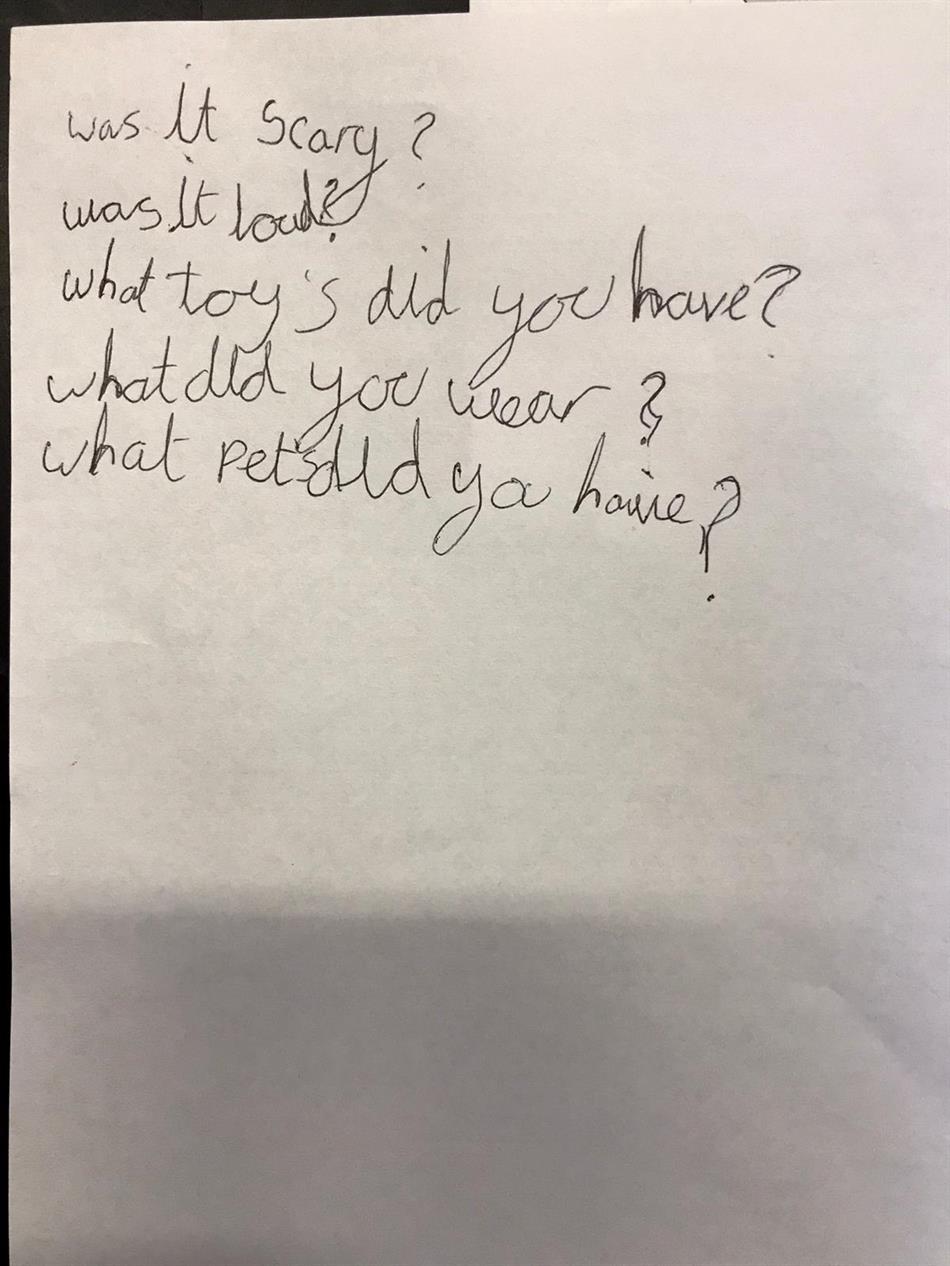 was it scary?
was it loud?
what toy's did you have?
what did you wear?
what pet's did you have?